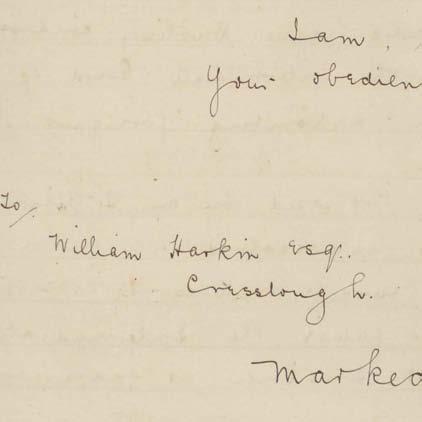 I am,
Your obedien
To/
William Harkin Esq.
Cresslough.
Marked